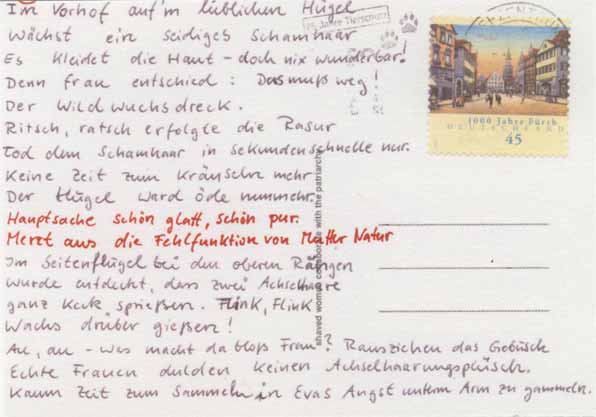 Im Vorhof auf'm lieblichen Hügel
Wächst ein seidiges Schamhaar
Es kleidet die Haut - doch nix wunderbar!
Denn frau entschied: Das muß weg!
Der Wildwuchsdreck.
Ritsch, ratsch erfolgte die Rasur
Tod dem Schamhaar in Sekundenschnelle nur.
Keine Zeit zum Kräuseln mehr
Der Hügel ward öde nunmehr.
Hauptsache schön glatt, schön pur.
Merzt aus die Fehlfunktion von Mutter Natur
Im Seitenflügel bei den oberen Rängen
wurde entdeckt, dass zwei Achselhaare
ganz keck sprießen. Flink, Flink
Wachs drüber gießen!
Au, au - was macht da bloß Frau? Rausziehen das Gebüsch
Echte Frauen dulden keinen Achselhaarungsplüsch.
Kaum Zeit zum Sammeln in Evas Angst unterm Arm zu gammeln.
Jahre Tierschutz
1000 Jahre Fürth
DEUTSCHLAND
45
shaved women collaborate with the patriarchy